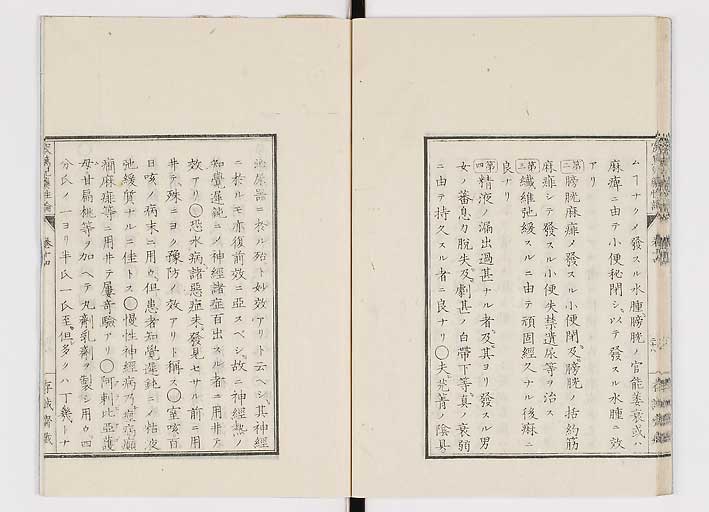 ムコナクメ發スル水腫、膀胱ノ官能萎衰或ハ
麻痺ニ由テ小便秘閉シ、以テ發スル水腫ニ效
アリ
第二膀胱麻痺ノ發スル小便閉、及ヒ膀胱ノ括約筋
麻痺シテ發スル小便失禁遺尿等ヲ治ス
第三纎維弛緩スルニ由テ頑固經久ナル後痲ニ
良ナリ
第四精液ノ漏出過甚ナル者、及ヒ其ヨリ發スル男
女ノ蕃息力脱失、及ヒ劇甚ノ白帶下等、真ノ衰弱
ニ由テ持久スル者ニ良ナリ〇夫レ芫菁ノ陰具
泌尿器ニ於ル殆ト妙效アリト云ヘシ、其神經
ニ於ルモ亦復前效ニ亞スベシ、故ニ神經熱ノ
知覺遲鈍ニノ神經諸症百出スル者ニ用井テ
效アリ〇恐水病諸惡症未タ發見セサル前ニ用
井テ殊ニヨク豫防ノ效アリト稱ス〇室咳百
日咳ノ病末ニ用ウ、但患者知覺遲鈍ニノ粘液
弛緩質ナルニ佳トス〇慢性神經病乃
麻痺等ニ用井テ屢奇驗アリ〇阿刺比亞護
母甘扁桃等ヲ加ヘテ丸劑乳劑ヲ製シ用ウ四
分氏ノ一ヨリ半氏一氏至、但多クハ丁幾トナ
卷十四
存誠齋藏